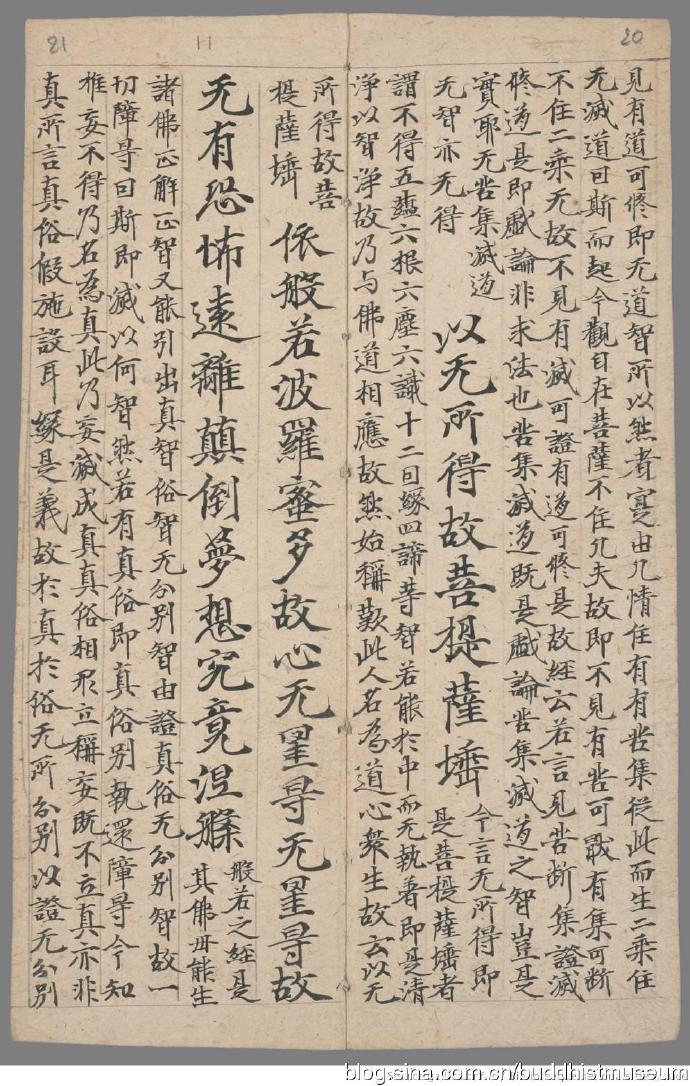 20
見有道可修即无道智所以然者寔由凡情住有有苦集從此而生二乘住
无滅道因斯而起今觀自在菩薩不住凡夫故即不見有苦可散有集可断
不住二乘无故不見有滅可證有道可修是故經云若言見苦断集證滅
修道是即戲論非求法也苦集滅道既是戲論苦集滅道之智豈是
實耶无苦集滅道
无智亦无得
以无所得故菩提薩埵
今言无所得即
是菩提薩埵者
謂不得五蘊六根六塵六識十二因緣四諦等智若能於中而无執著即是清
淨以智淨故乃与佛道相應故然始稱歎此人名為道心眾生故云以无
所得故菩
提薩埵
依般若波羅蜜多故心无罣㝵无罣㝵故
无有恐怖遠離顛倒夢想究竟涅槃
般若之經是
其佛母能生
諸佛正解正智又能引出真智俗智无分别智由證真俗无分别智故一
切障㝵因斯即滅以何智然若有真俗即真俗别執還障㝵今知
唯妄不得乃名為真此乃妄滅成真真俗相形立稱妄既不立真亦非
真所言真俗假施設耳緣是義故於真於俗无所分别以證无分别
21
blog.sina.com.cn/buddhistmuseum